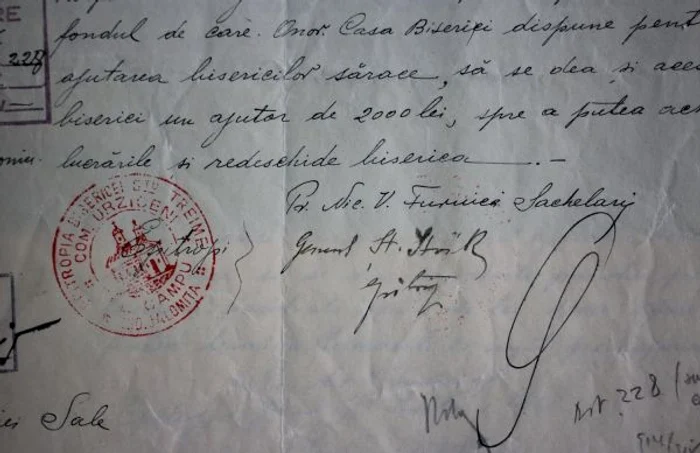 RE
228
fondul de care. Onor. Casa Bisericei dispune pent
ajutarea bisericilor sărace, să se dea și aces
biserici un ajutor de 2000 lei, spre a putea ace
lucrările și redeschide biserica — . —
Pr. Nic. V. Furnica Sachelariu
EPITROPIA BISERICEI Sta TREIME
COM. URZICENI
CÂMPU
JUD. IALOMITA
Epitropi
General St.
Sale
228